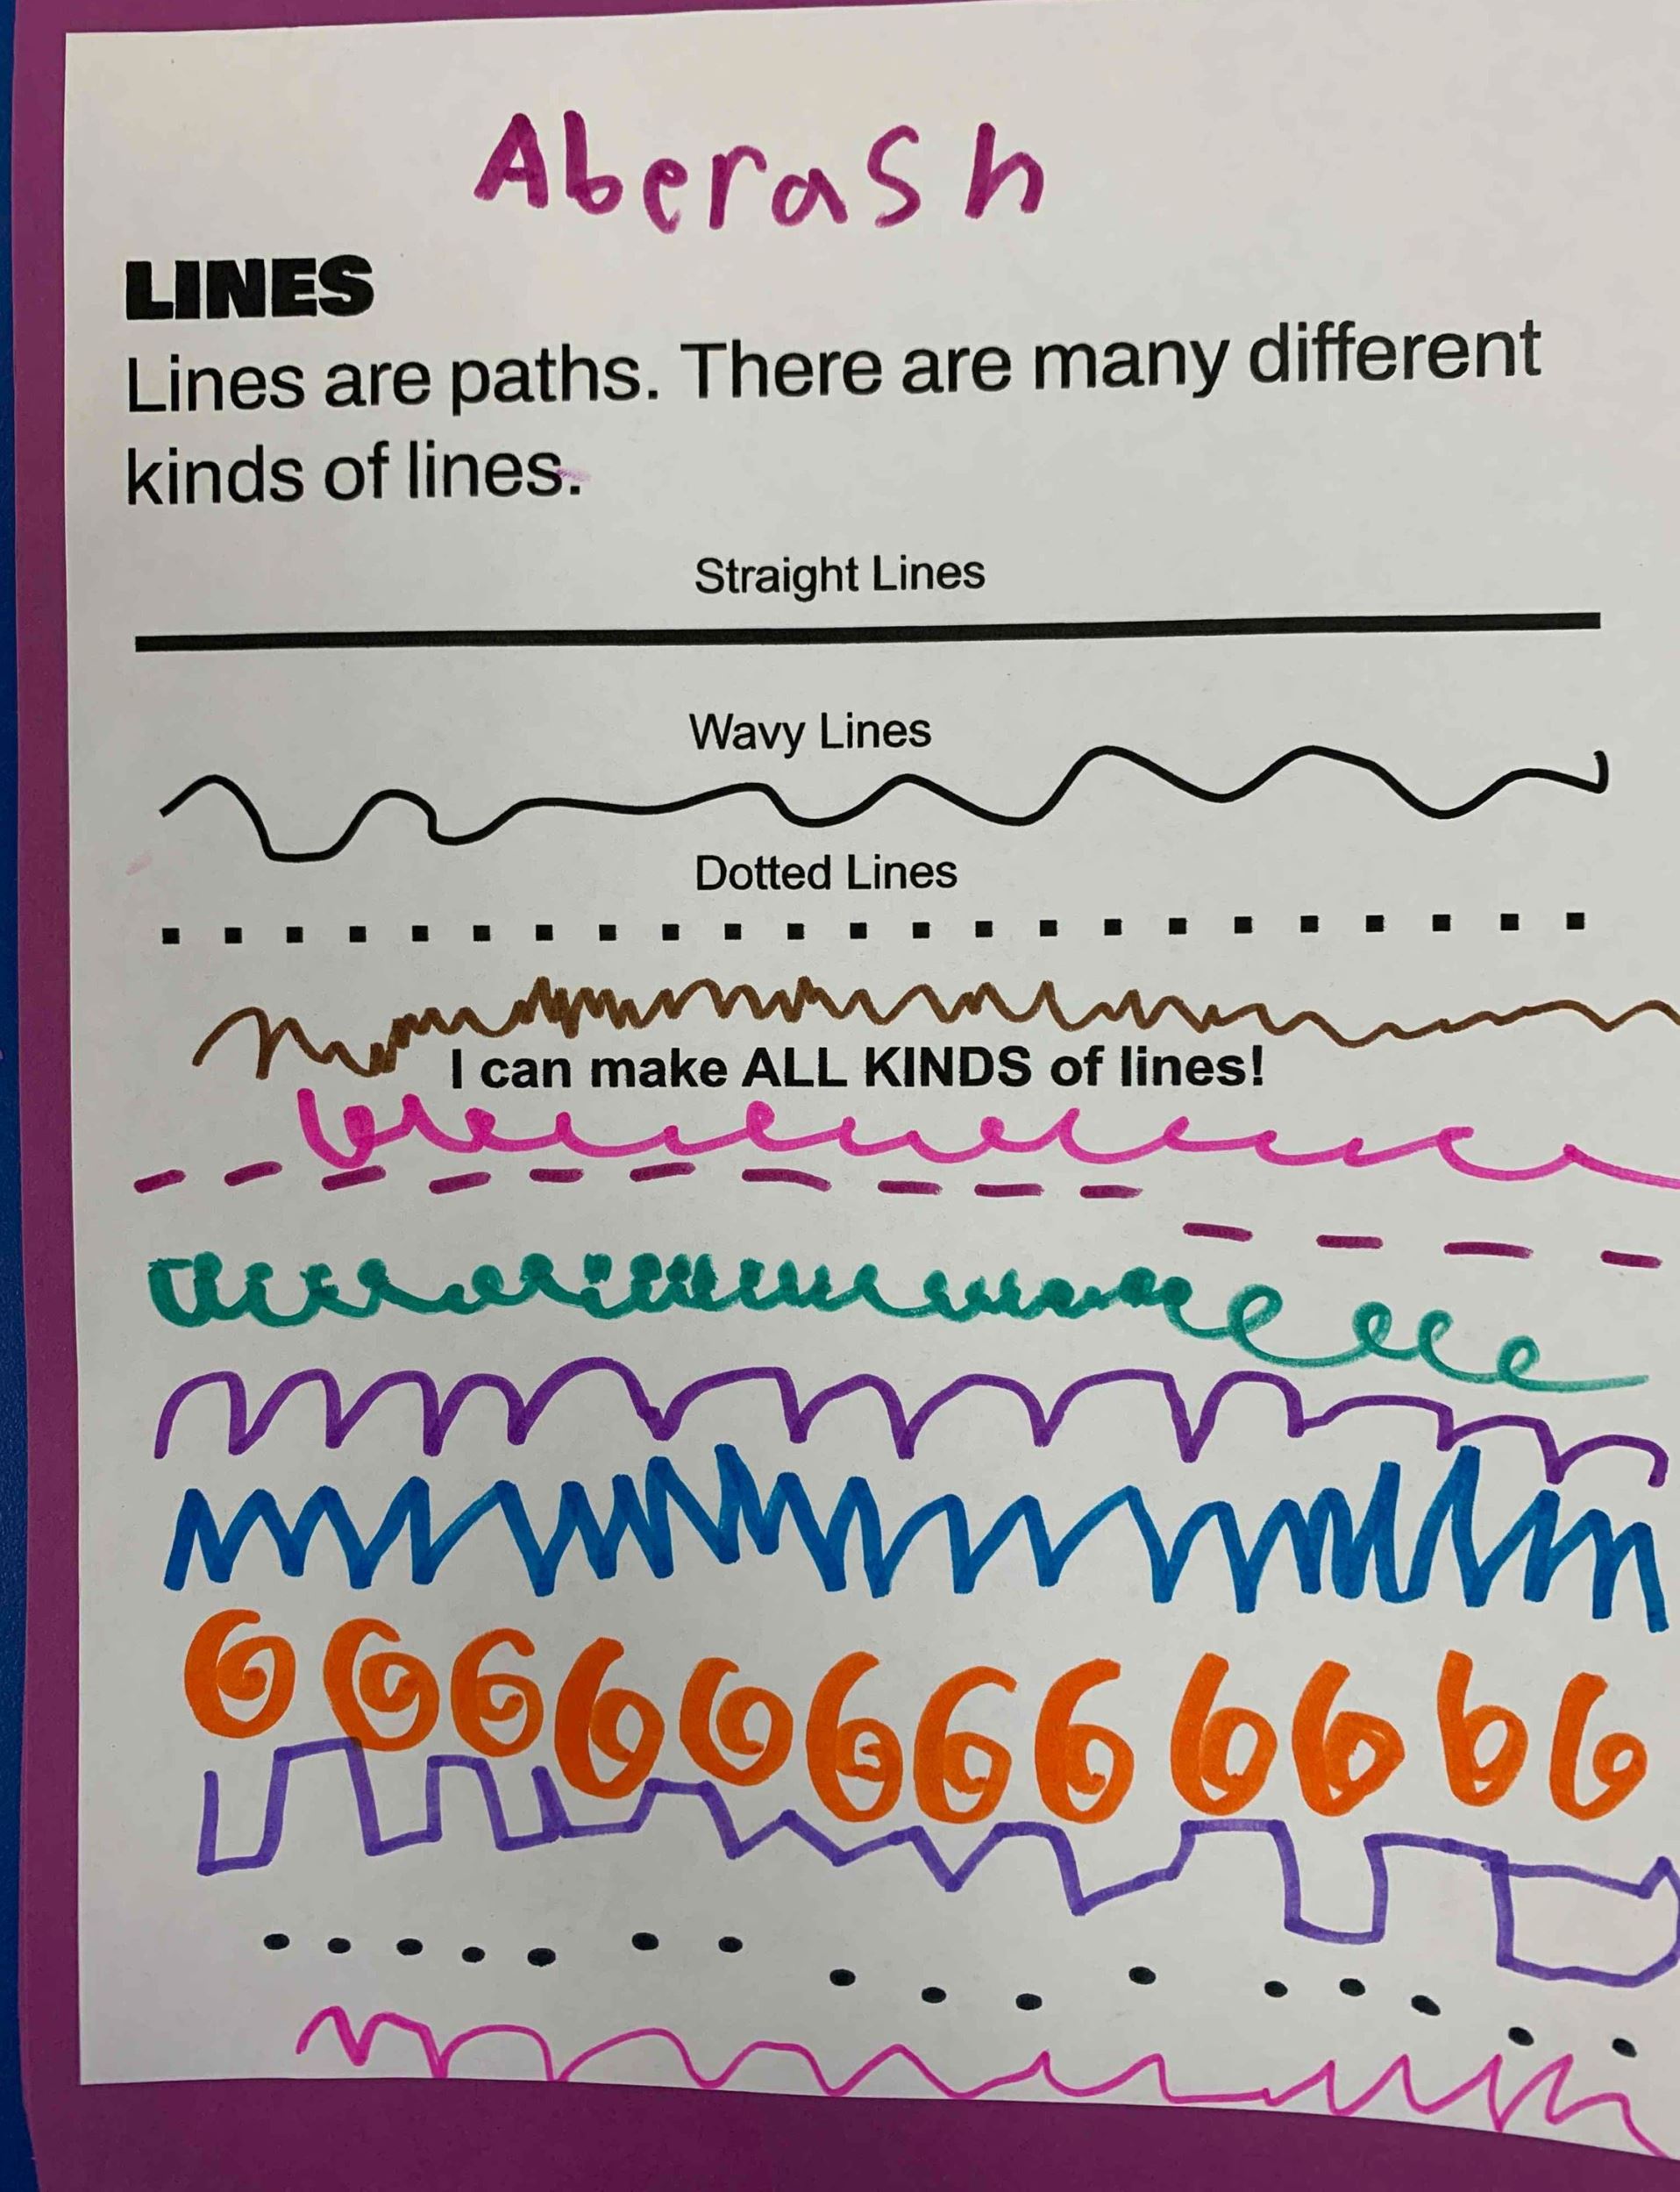 Aberash
LINES
Lines are paths. There are many different
kinds of lines.
Straight Lines
Wavy Lines
Dotted Lines
I can make ALL KINDS of lines!